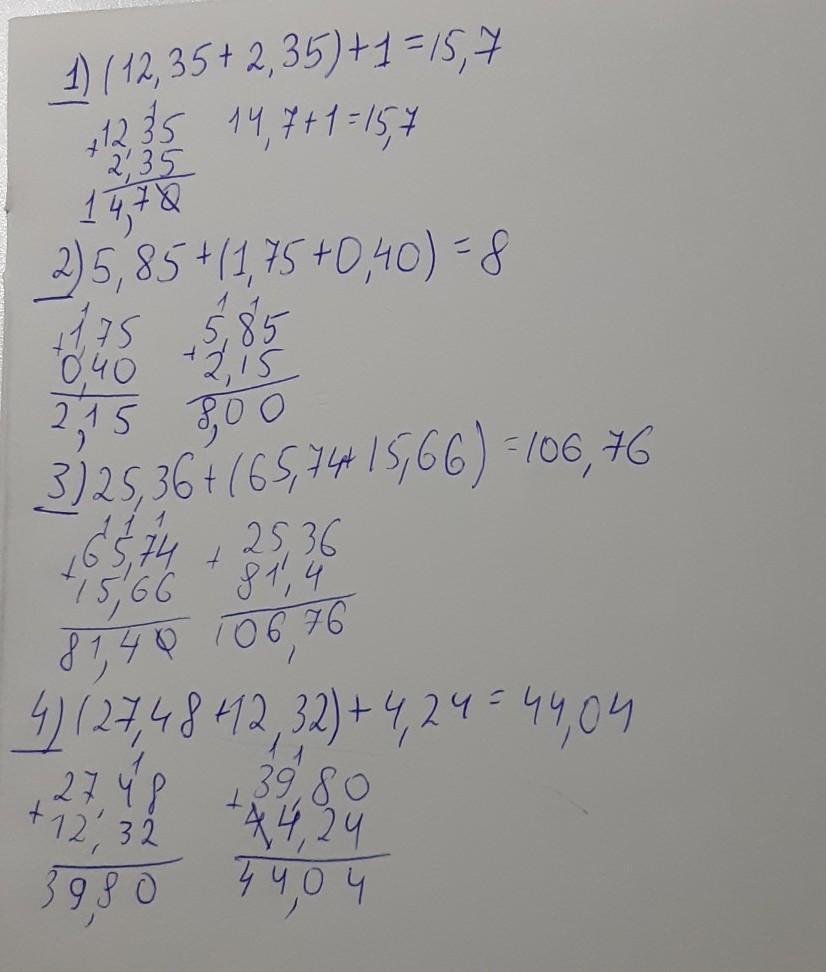 1) (12,35 + 2,35) + 1 = 15,7
1
+12,35 14,7+1=15,7
2,35
14,70
2) 5,85 + (1,75 + 0,40) = 8
1 1 1
+1,75 +5,85
0,40 2,15
2,15 8,00
3) 25,36 + (65,74 + 15,66) = 106,76
1 1 1
+65,74 + 25,36
15,66 81,4
81,40 106,76
4) (27,48 + 12,32) + 4,24 = 44,04
1 1 1
+27,48 +39,80
12,32 4,24
39,80 44,04